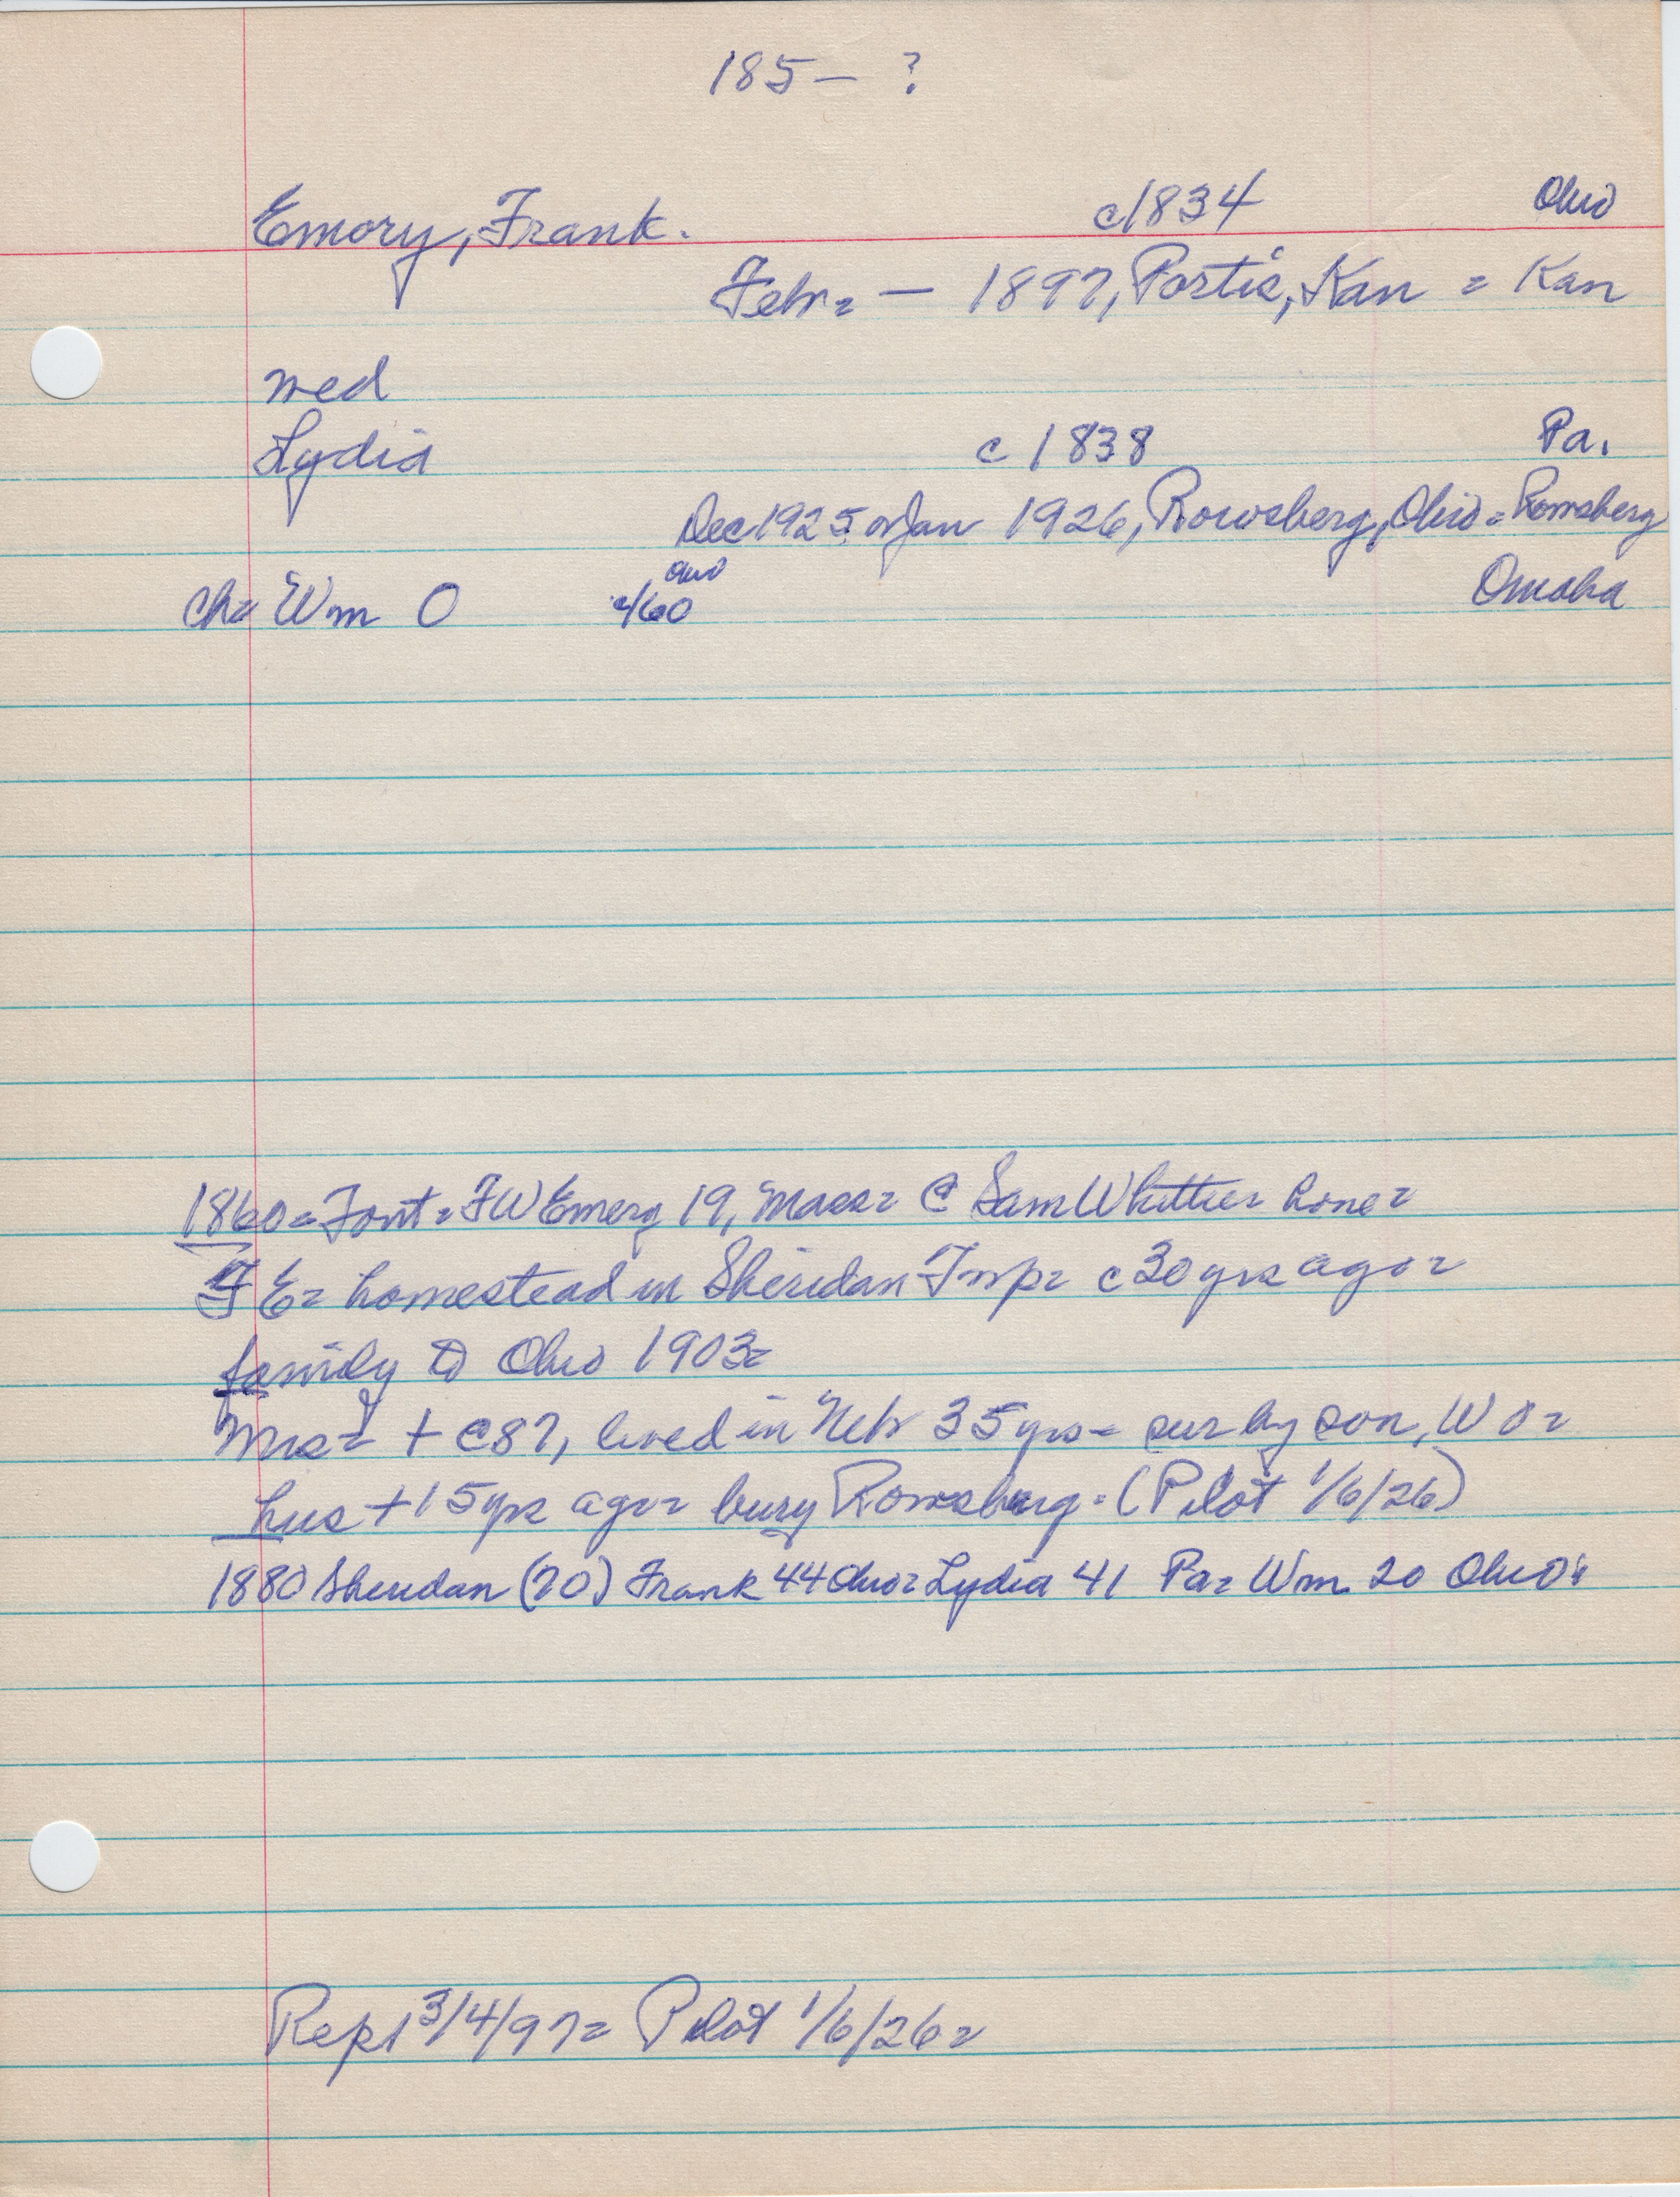 185— ?
Emory, Frank. c1834 Ohio
Febr= — 1897, Portis, Kan = Kan
wed
Lydia c 1838 Pa.
Dec 1925 or Jan 1926, Rowsberg, Ohio = Rowsberg
Ohio
ch= Wm O c/60 Omaha
1860= Font= FW Emery 19, Mass= @ Sam Whittier home=
F E= homestead in Sheridan Twp= c 30 yrs ago=
family to Ohio 1903=
Mrs= + c87, lived in Neb 35 yrs= sur by son, W O=
hus + 15 yrs ago= bury Rowsberg. (Pilot 1/6/26)
1880 Sheridan (70) Frank 44 Ohio= Lydia 41 Pa= Wm 20 Ohio
Repl 3/4/97= Pilot 1/6/26=